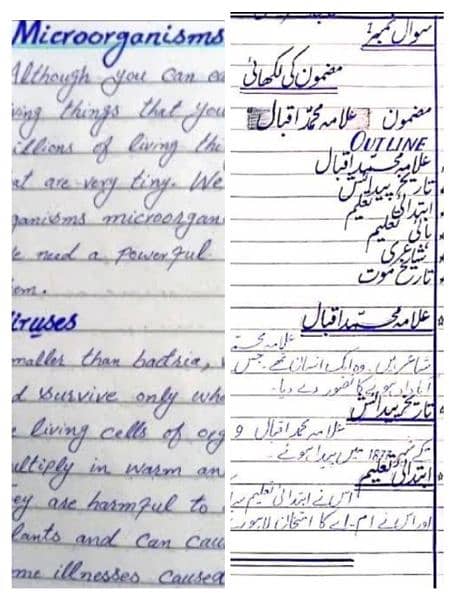 Microorganisms
Although you can
ving things that you
illions of living thi
at are very tiny. We
ganisms microorgan
e need a powerful
em.
Viruses
maller than bactria,
d survive only whe
e living cells of org
ultiply in warm an
ey are harmful to
lants and can cau
me illnesses caused
سوال نمبر
مضمون کی لکھائی
مضمون علامہ محمد اقبال
OUTLINE
علامہ محمد اقبال
تاریخ پیدائش
ابتدائی تعلیم
باقی تعلیم
شاعری
تاریخ موت
علامہ محمد اقبال
علامہ محمد
شاعر ہیں۔ وہ ایک انسان تھے۔ جس
ہونے کا تصور دے دیا۔
تاریخ پیدائش
علامہ محمد اقبال و
نومبر میں پیدا ہوئے۔
ابتدائی تعلیم
اس نے ابتدائی تعلیم
اور اس نے ام۔اے کا امتحان لاہور